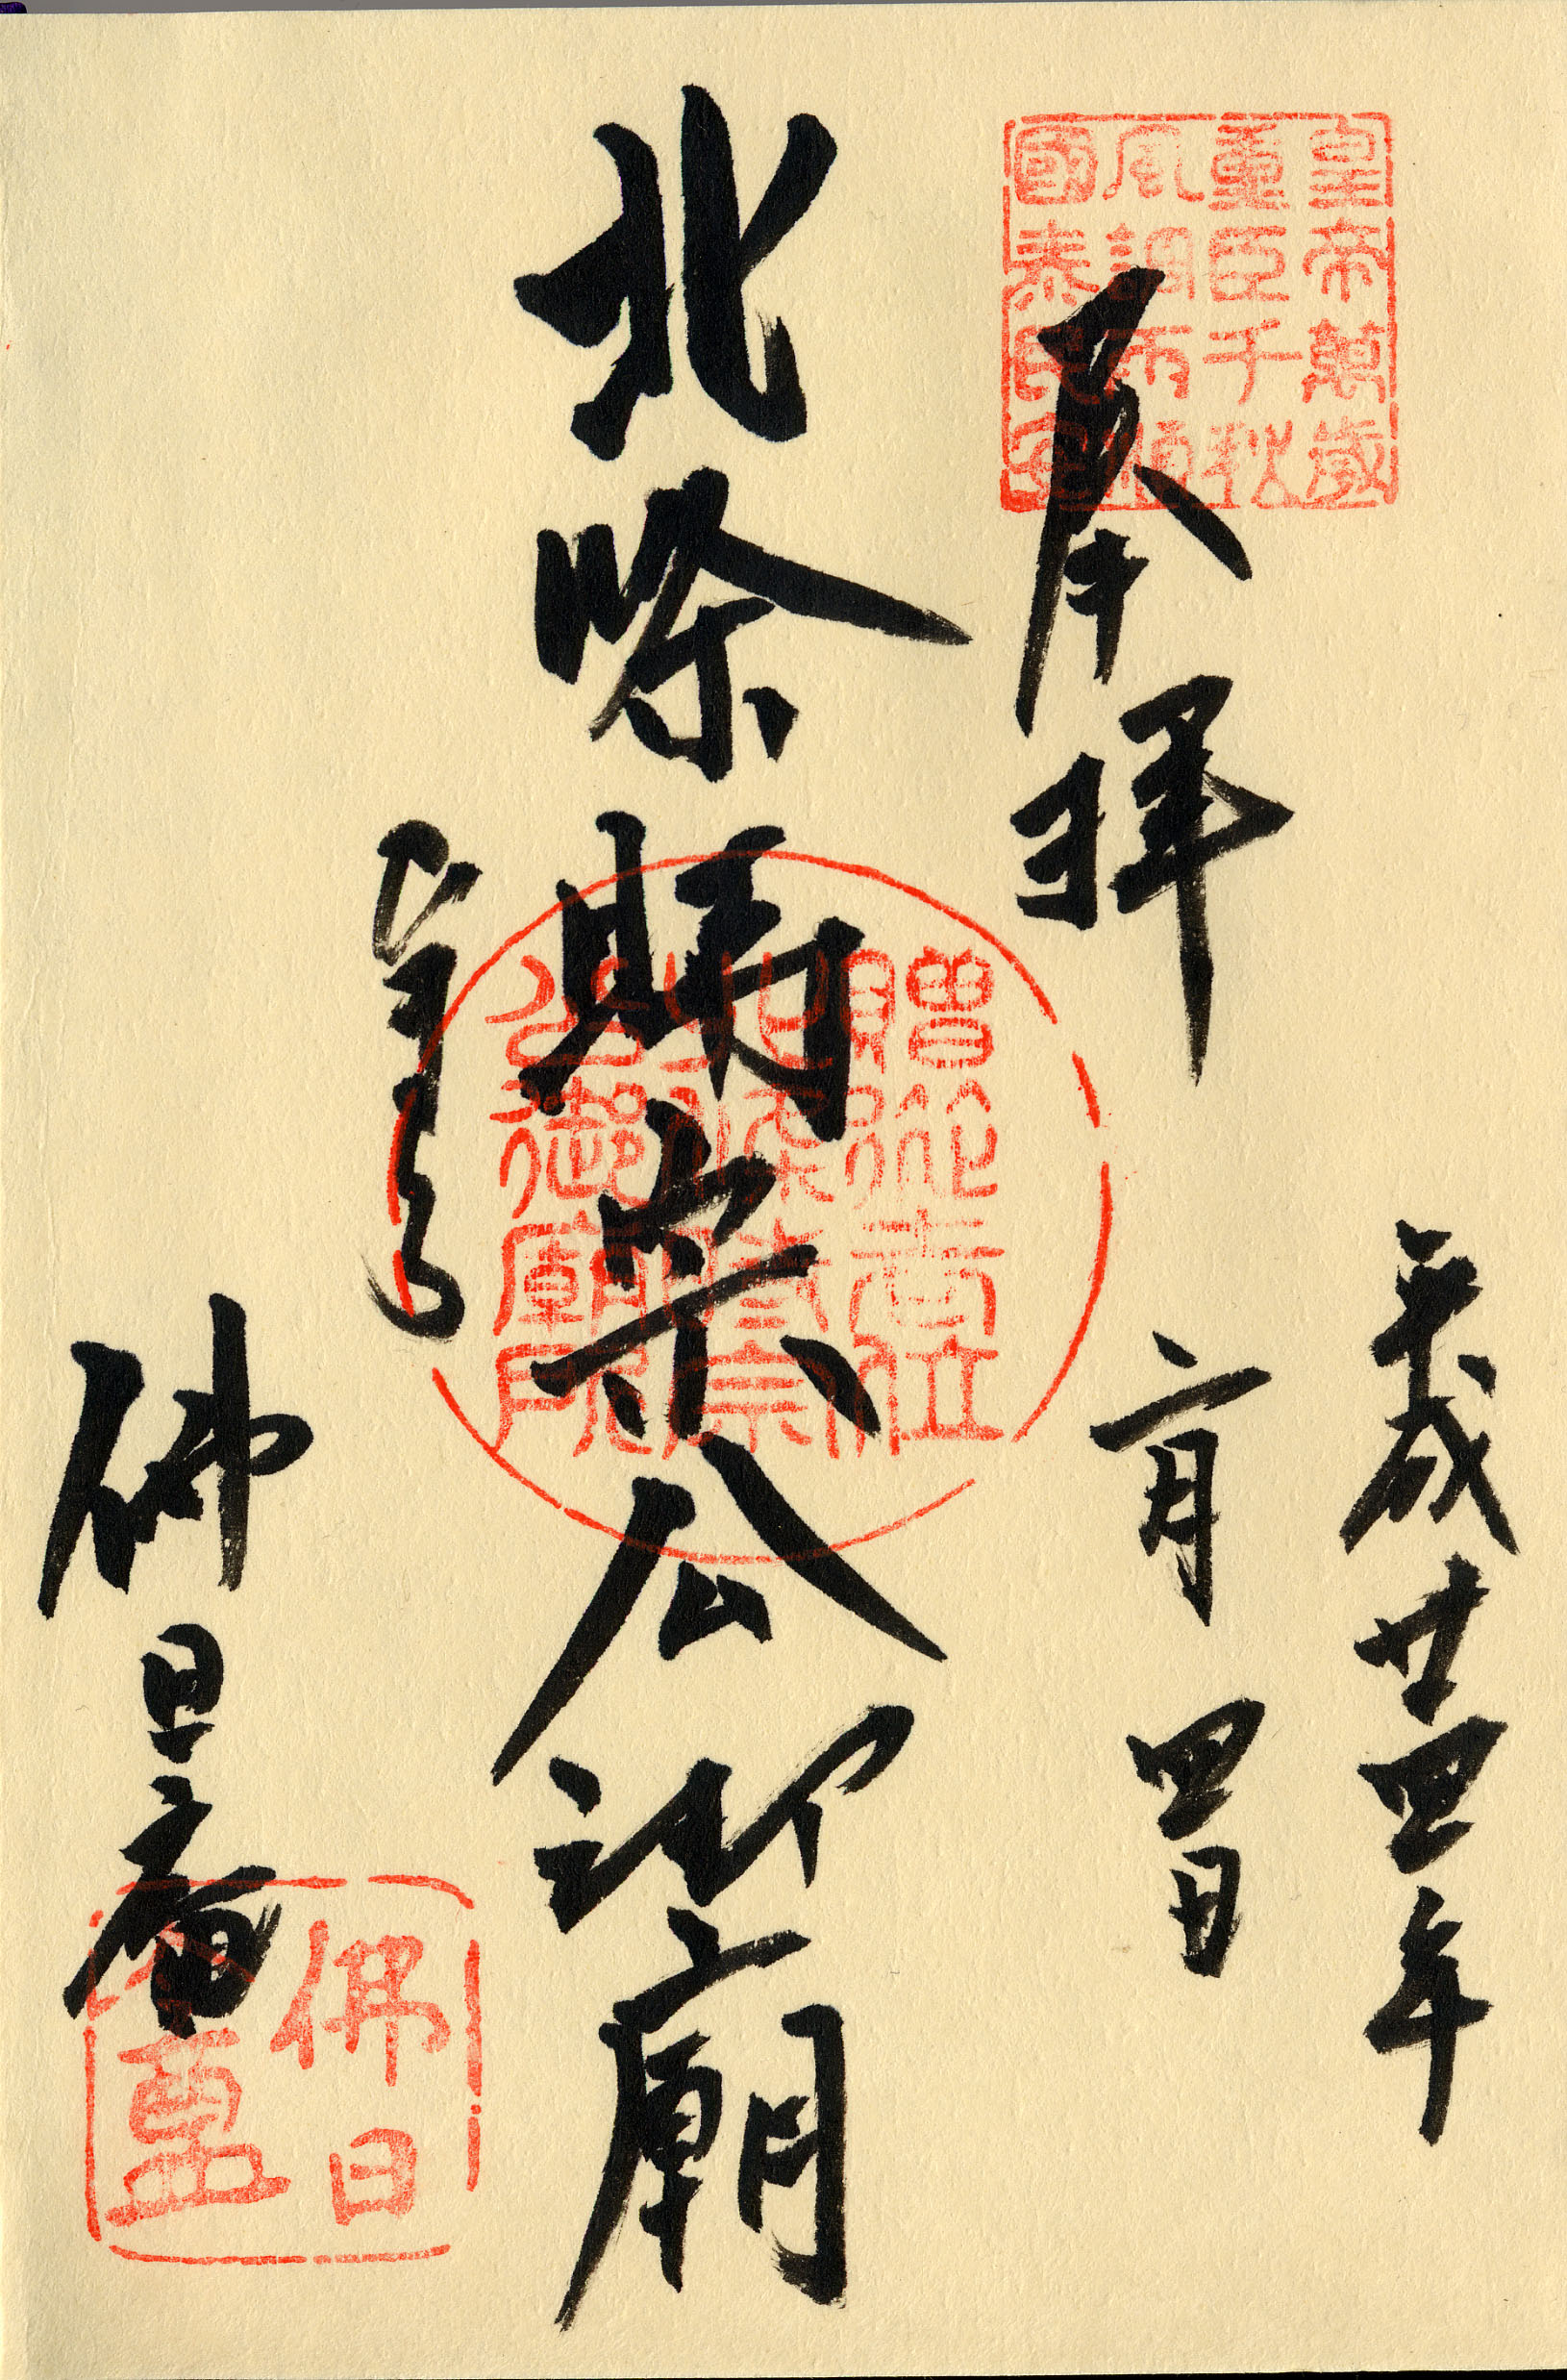 皇帝萬歳
重臣千秋
風調雨順
國泰民安
平成廿四年
二月四日
奉拝
北條時宗公御廟
贈從壹位
北條時宗
公御廟所
佛日庵
佛日
盦